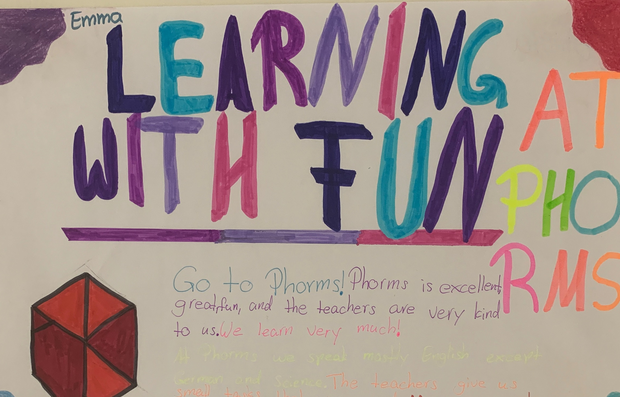 Emma
LEARNING
WITH FUN
AT
PHO
RMS
Go to Phorms! Phorms is excellent,
great, fun, and the teachers are very kind
to us. We learn very much!
At Phorms we speak mostly English except
German and Science. The teachers give us